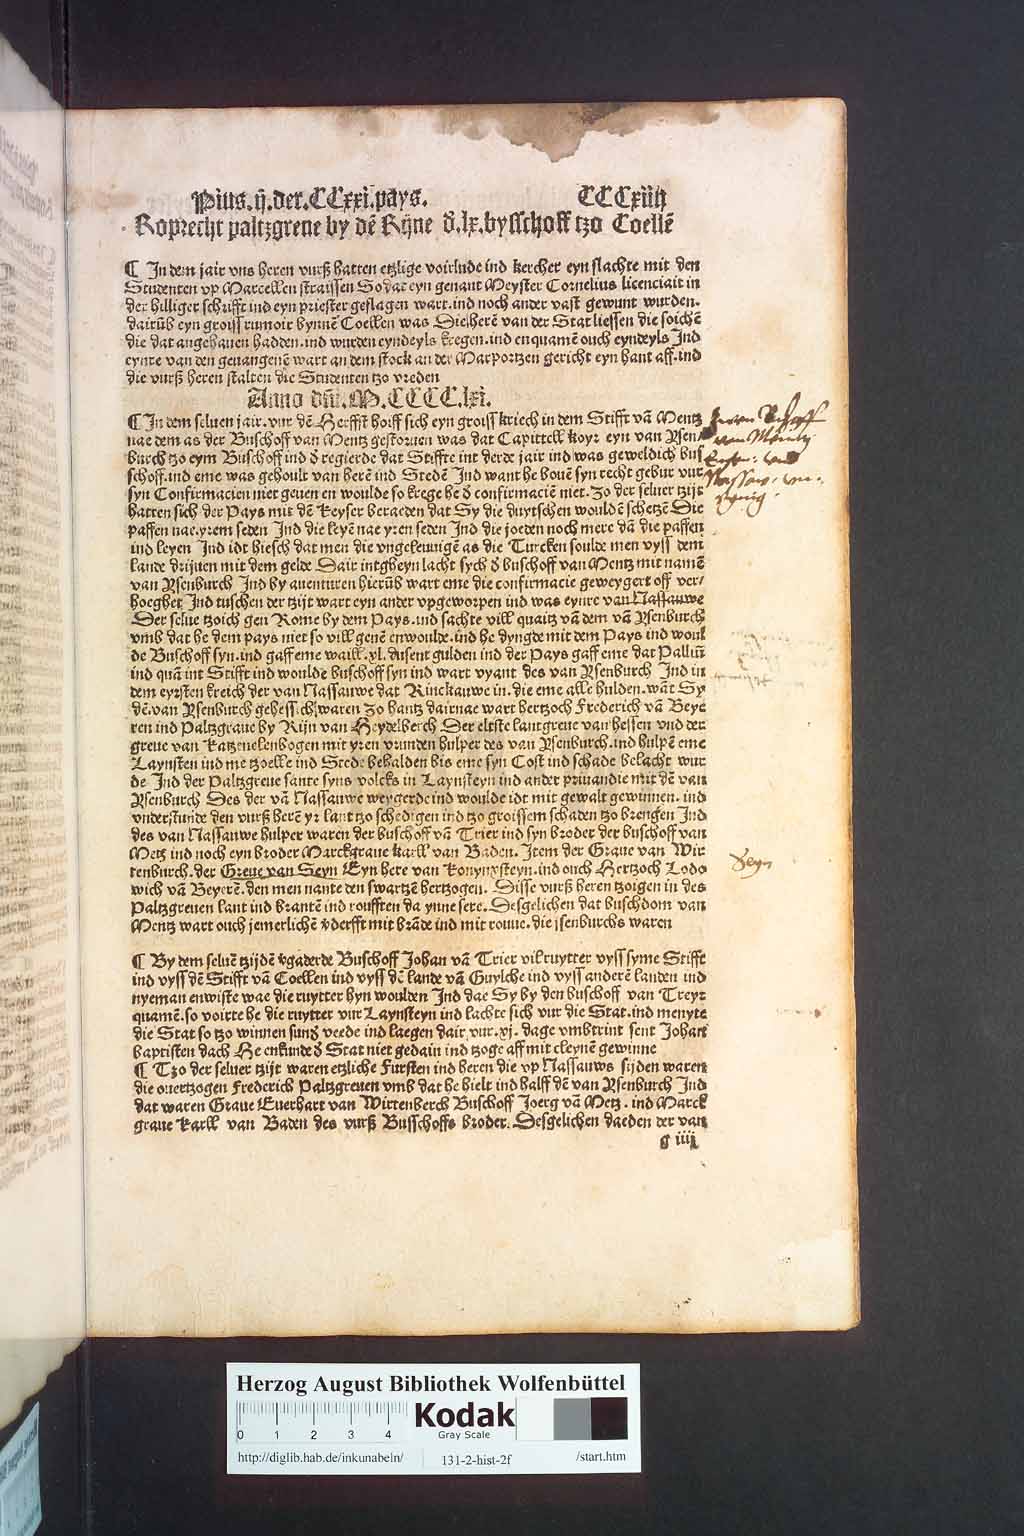 Pius.ij.der.CCxxi.pays. CCCxiiij
Roprecht paltzgreue by dē Rijne d̄.lx.bysschoff tzo Coellē
¶ In dem jair vns heren vurß hatten etzlige voirlude ind kercher eyn slachte mit den
Studenten vp Marcellen straissen So dat eyn genant Meyster Cornelius licenciait in
der hilliger schrifft ind eyn priester geslagen wart.ind noch ander vast gewunt wurden.
dairūb eyn groiss rumoir bynnē Coellen was Die herē van der Stat liessen die soichē
die dat angehauen hadden.ind wurden eyndeyls kregen.ind enquamē ouch eyndeyls Ind
eynre van den geuangenē wart an dem stock an der Marportzen gericht eyn hant aff.ind
die vurß heren stalten die Studenten tzo vreden
Anno dñi.M.CCCC.lxi.
¶ In dem seluen jair.vur dē Herffst hoiff sich eyn groiss kriech in dem Stifft vā Mentz
nae dem as der Buschoff van Mentz gestoruen was dat Capittell koyr eyn van Ysen
burch tzo eym Buschoff ind d̄ regierde dat Stiffte int derde jair ind was geweldich bus
schoff.ind eme was gehoult van herē ind Stedē Ind want he bouē syn recht gebur vur
syn Confirmacien niet geuen en woulde so krege he d̄ confirmaciē niet. Zo der seluer tzijt
hatten sich der Pays mit dē Keyser beraeden dat Sy die duytschen wouldē schetzē Die
paffen nae.yrem seden Ind die leyē nae yren seden Ind die joeden noch mere dā die paffen
ind leyen Ind idt hiesch dat men die vngeleuuigē as die Turcken soulde men vyss dem
lande drijuen mit dem gelde Dair intgheyn lacht sych d̄ buschoff van Mentz mit namē
van Ysenburch Ind by auenturen hierūb wart eme die confirmacie geweygert off ver/
hoeghet Ind tuschen der tzijt wart eyn ander vpgeworpen ind was eynre van Nassauwe
Der selue tzoich gen Rome by dem Pays.ind sachte vill quaitz vā dem vā Ysenburch
vmb dat he dem pays niet so vill geuē enwoulde.ind he dyngde mit dem Pays ind woul
de Buschoff syn.ind gaff eme waill.xl.dusent gulden ind der Pays gaff eme dat Palliū
ind quā int Stifft ind woulde buschoff syn ind wart vyant des van Ysenburch Ind in
dem eyrsten kreich der van Nassauwe dat Rinckauwe in.die eme alle hulden.wāt Sy
dē.van Ysenburch gehessich waren Zo hantz dairnae wart hertzoch Frederich vā Beye
ren ind Paltzgraue by Rijn van Heydelberch Der eltste lantgreue van hessen vnd der
greue van Katzenelenbogen mit yren vrunden hulper des van Ysenburch.ind hulpē eme
Laynsten ind me tzoelle ind Stede behalden bis eme syn Cost ind schade belacht wur
de Ind der Paltzgreue sante syns volcks in Laynsteyn ind ander priuandie mit dē van
Ysenburch Des der vā Nassauwe weygerde ind woulde idt mit gewalt gewinnen. ind
vnderstunde den vurß herē yr lant tzo schedigen ind tzo groissem schaden tzo brengen Ind
des van Nassauwe hulper waren der buschoff vā Trier ind syn broder der buschoff van
Metz ind noch eyn broder Marckgraue karll van Baden. Item der Graue van Wir
tenburch.der Greue van Seyn Eyn here van Konynxsteyn.ind ouch Hertzoch Lodo
wich vā Beyerē.den men nante den swartzē hertzogen. Disse vurß heren tzoigen in des
Paltzgreuen lant ind brantē ind roufften da ynne sere. Desgelichen dat buschdom van
Mentz wart ouch jemerlichē v̄derfft mit brāde ind mit rouue. die jsenburchs waren
¶ By dem seluē tzijdē v̄gaderde Buschoff Johan vā Trier vil ruytter vyss syme Stiffe
ind vyss dē Stifft vā Coellen ind vyss dē lande vā Guylche ind vyss anderē landen ind
nyeman enwiste wae die ruytter hyn woulden Ind dae Sy by den buschoff van Treyr
quamē.so voirte he die ruytter vur Laynsteyn ind lachte sich vur die Stat.ind menyte
die Stat so tzo winnen sund̄ veede ind laegen dair vur.xj. dage vmbtrint sent Johan
baptisten dach He enkunde d̄ Stat niet gedain ind tzoge aff mit cleynē gewinne
¶ Tzo der seluer tzijt waren etzliche Fursten ind heren die vp Nassauws sijden waren
die ouertzogen Frederich Paltzgreuen vmb dat he hielt ind halff dē van Ysenburch Ind
dat waren Graue Euerhart van Wirtenberch Buschoff Joerg vā Metz . ind Marck
graue Karll van Baden des vurß Busschoffs broder. Desgelichen daeden der van
g iiij
Seyn
Herzog August Bibliothek Wolfenbüttel
0 1 2 3 4
Kodak
Gray Scale
http://diglib.hab.de/inkunabeln/ 131-2-hist-2f /start.htm